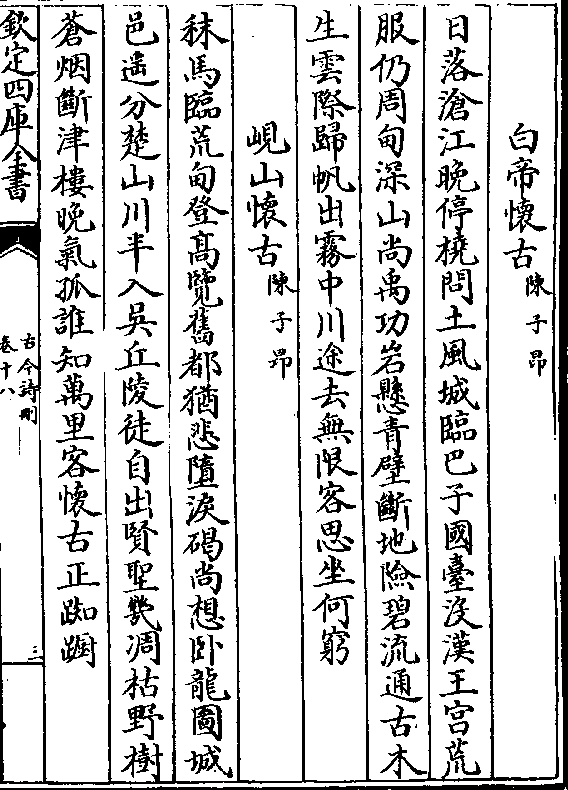 白帝懷古 陳子昂
日落滄江晚停橈問土風城臨巴子國臺沒漢王宮荒
服仍周甸深山尚禹功岩懸青壁斷地險碧流通古木
生雲際歸帆出霧中川途去無限客思坐何窮
峴山懷古 陳子昂
秣馬臨荒甸登高覽舊都猶悲墮淚碣尚想卧龍圖城
邑遙分楚山川半入吳丘陵徒自出賢聖幾凋枯野樹
蒼烟斷津樓晚氣孤誰知萬里客懷古正踟蹰
欽定四庫全書
古今詩刪
卷十八
三